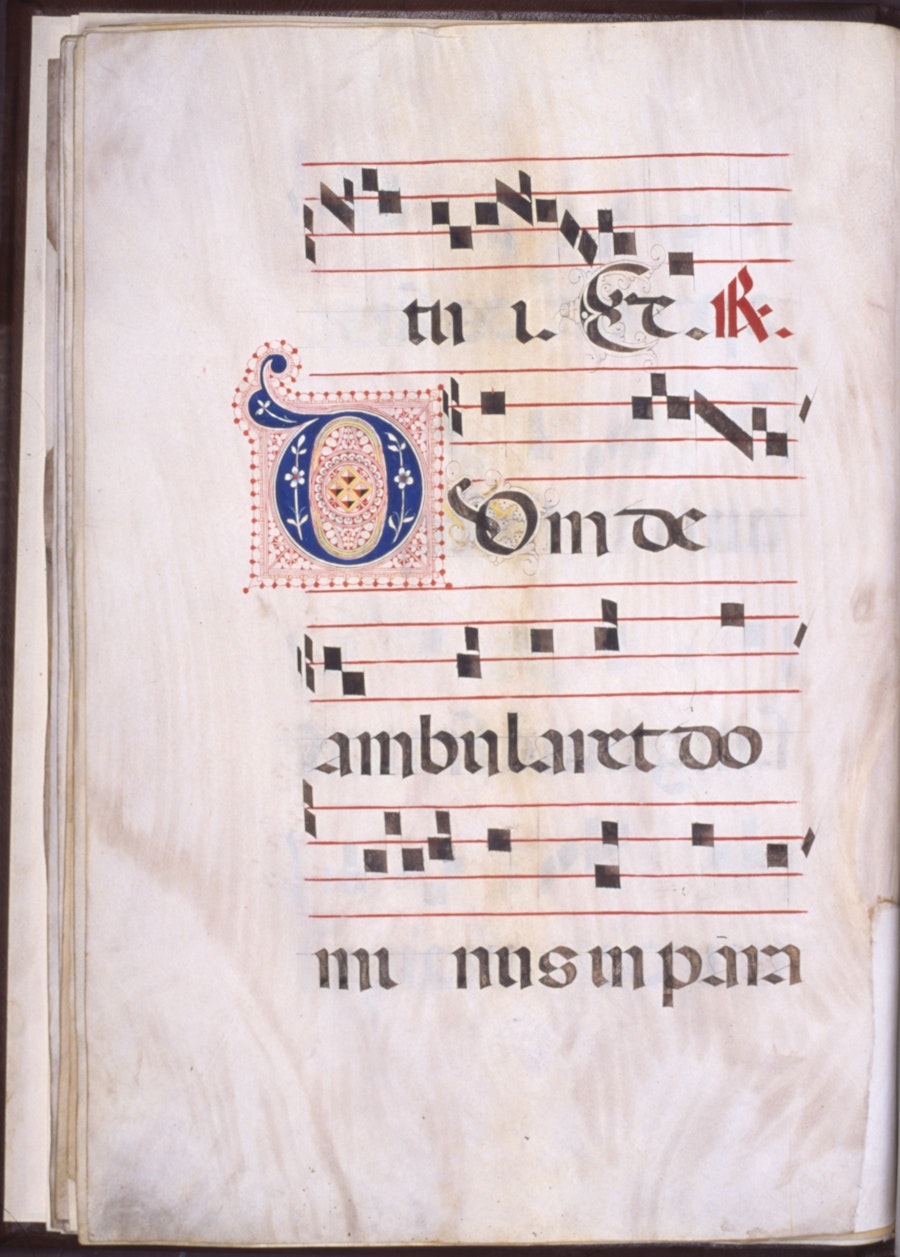 tu i. Et. ℟.
DVm de
ambularet do
mi nus in para